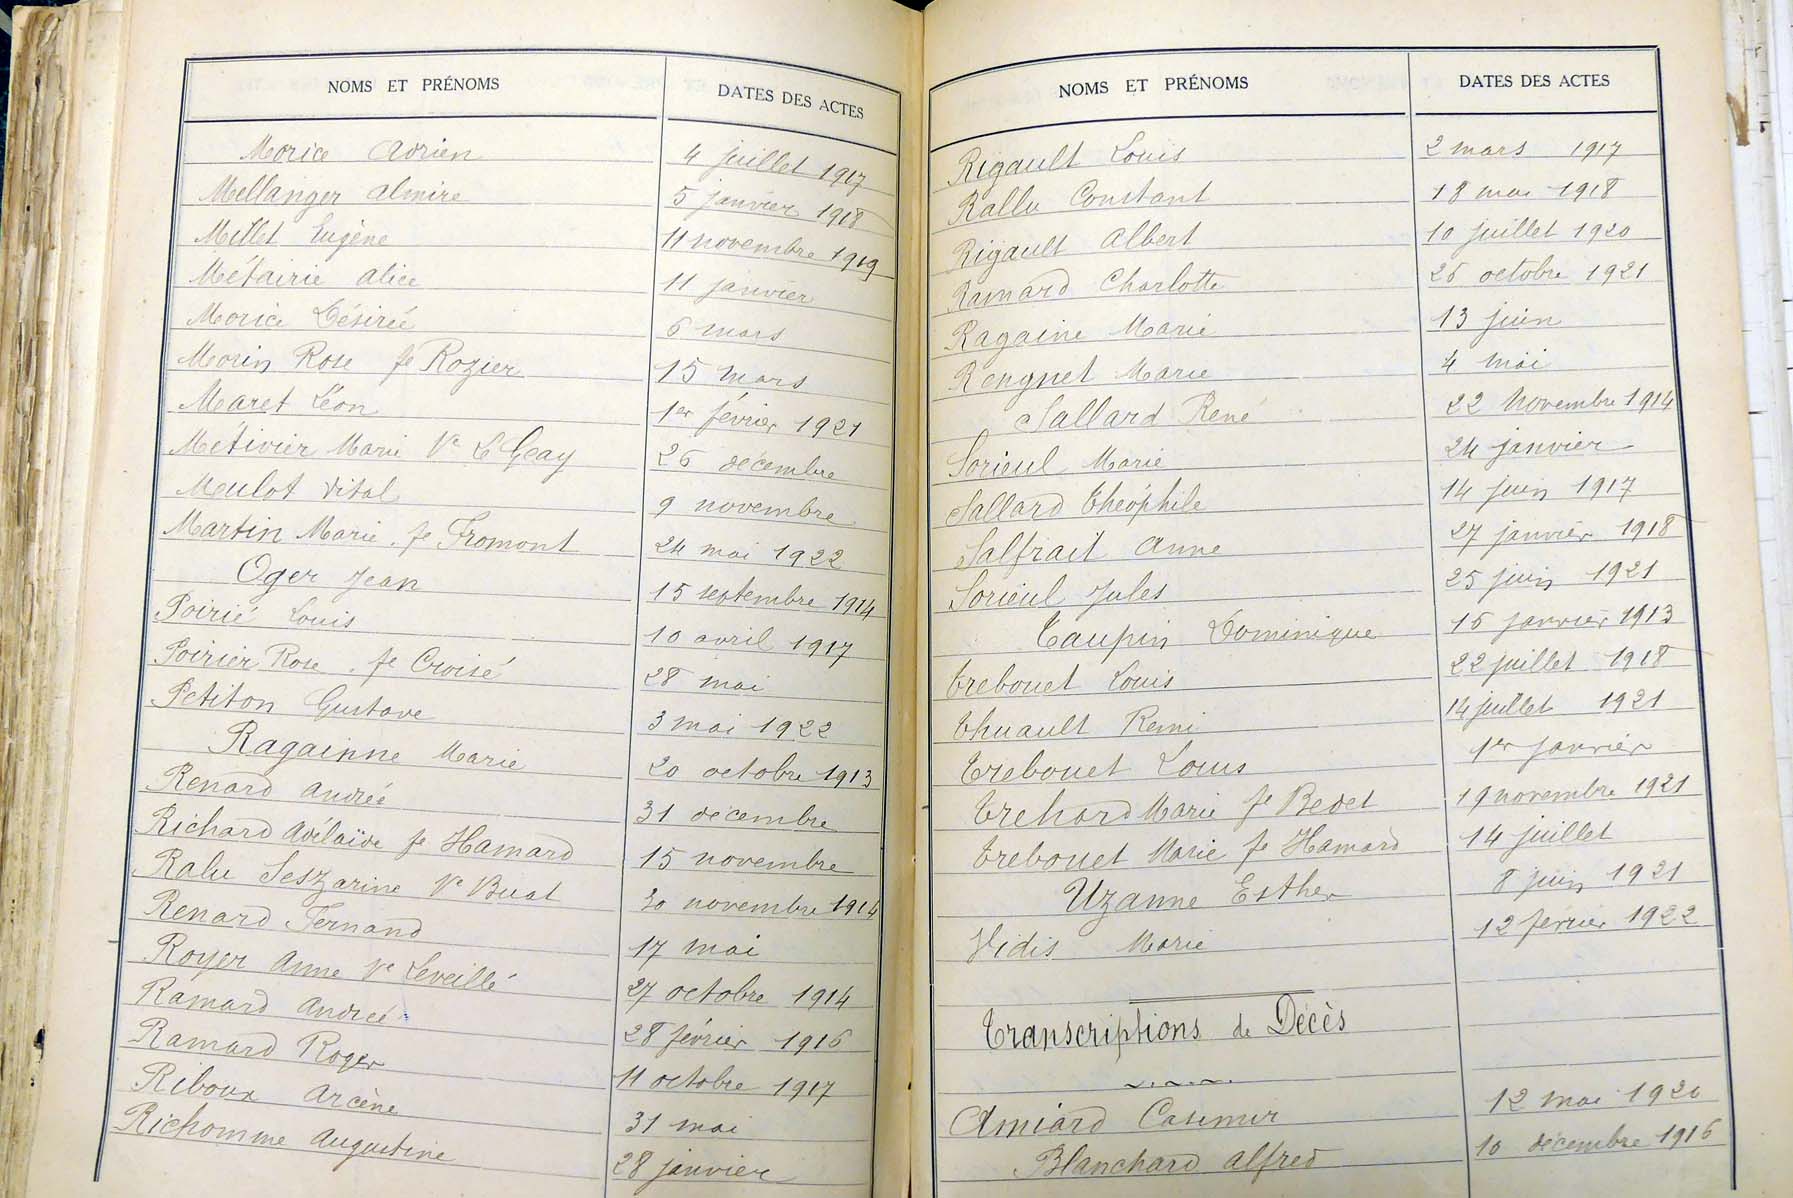 NOMS ET PRÉNOMS DATES DES ACTES
Morice Adrien 4 juillet 1917
Mellanger Almire 5 janvier 1918
Millet Eugène 11 novembre 1919
Métairie Alice 11 janvier
Morice Désirée 6 mars
Morin Rose fe Rozier 15 mars
Maret Léon 1er février 1921
Métivier Marie Ve Le Geay 26 décembre
Mulot Vital 9 novembre
Martin Marie. fe Fromont 24 mai 1922
Oger Jean 15 septembre 1914
Poirié Louis 10 avril 1917
Poirier Rose. fe Croisé 28 mai
Petiton Gustave 3 mai 1922
Ragainne Marie 20 octobre 1913
Renard Andrée 31 décembre
Richard Adélaïde fe Hamard 15 novembre
Ralu Ve Buat 30 novembre 1914
Renard Fernand 17 mai
Royer Anne Ve Leveillé 27 octobre 1914
Ramard Andrée 28 février 1916
Ramard Roger 11 octobre 1917
Riboux Arcène 31 mai
Richomme Augustine 28 janvier
NOMS ET PRÉNOMS DATES DES ACTES
Rigault Louis 2 mars 1917
Rallu Constant 18 mai 1918
Rigault Albert 10 juillet 1920
Ramard Charlotte 26 octobre 1921
Ragaine Marie 13 juin
Renguet Marie 4 mai
Sallard René 22 Novembre 1914
Sorieul Marie 24 janvier
Sallard Théophile 14 juin 1917
Salfrait Anne 27 janvier 1918
Sorieul Jules 25 juin 1921
Taupin Dominique 15 janvier 1913
Trebouet Louis 22 juillet 1918
Thuault Remi 14 juillet 1921
Trebouet Louis 1er janvier
Trehard Marie fe Bedet 19 novembre 1921
Trebouet Marie fe Hamard 14 juillet
Uzanne Esther 8 juin 1921
Vidis Marie 12 février 1922
Transcriptions de Décès
Amiard Casimir 12 mai 1920
Blanchard Alfred 10 décembre 1916